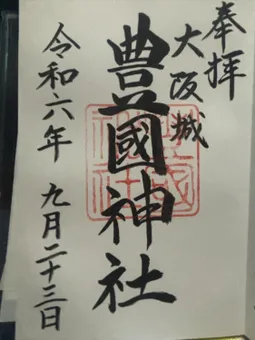 奉拝
大阪城
豊國神社
令和六年 九月二十三日